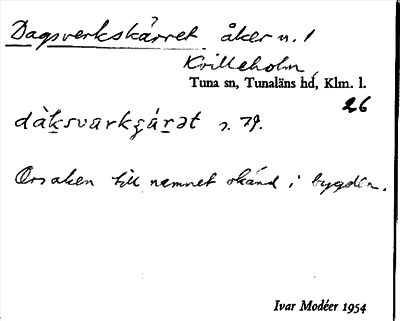 Dagsverkskärret åker n. 1
Kvilleholm
Tuna sn, Tunaläns hd, Klm. l.
26
s. 79.
Orsaken till namnet okänd i bygden.
Ivar Modéer 1954